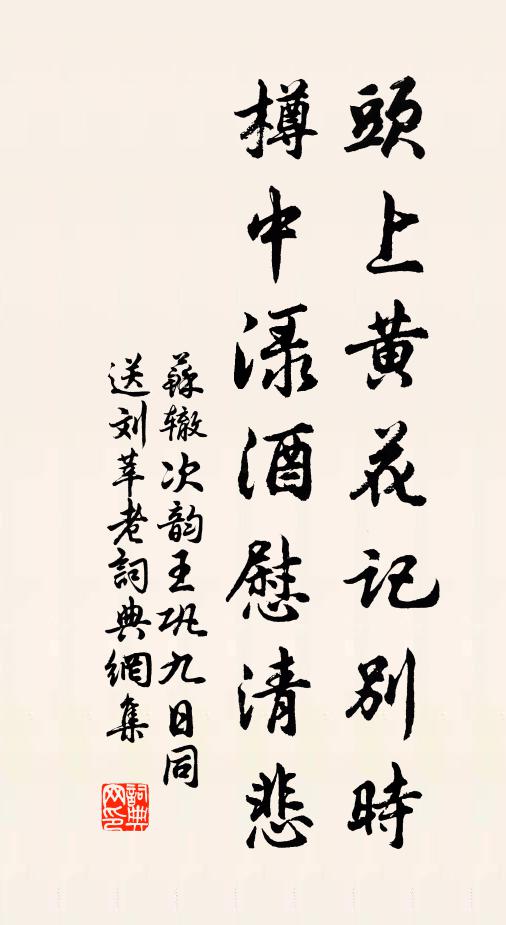 頭上黄花记别時
樽中渌酒慰清悲
蘇辙次韵王巩九日同
送刘莘老詞典網集
詞典网印